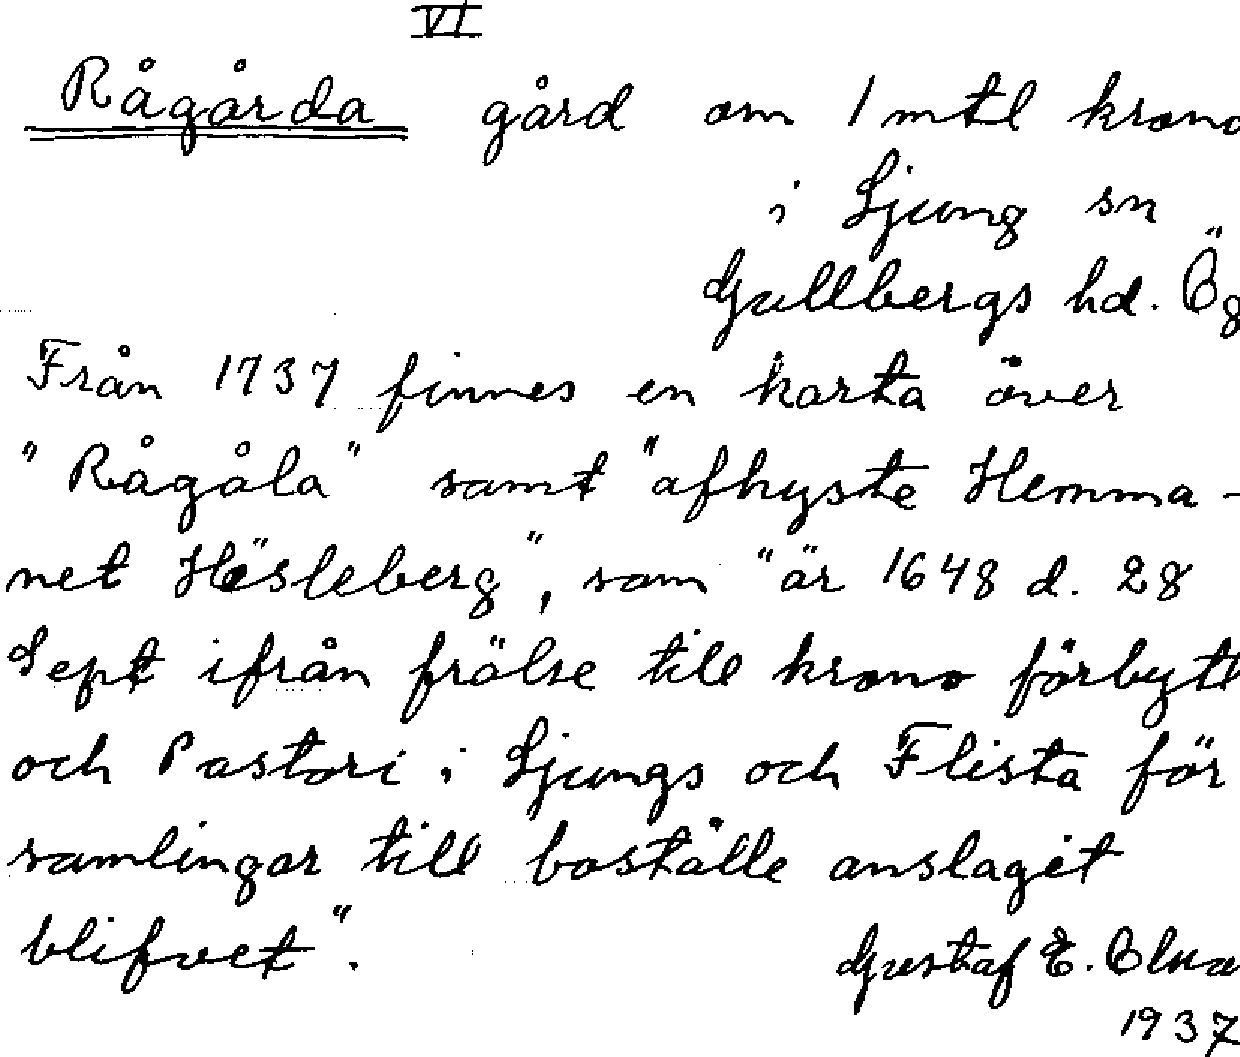 VI
Rågårda gård om 1 mtl krono
i Ljung sn
Gullbergs hd. Ög
Från 1737 finnes en karta över
"Rågåla" samt "afhyste Hemma-
net Hösleberg", som "är 1648 d. 28
Sept ifrån frälse till krono förbytt
och Pastori i Ljungs och Flista för
samlingar till boställe anslaget
blifvet".
Gustaf E.
1937